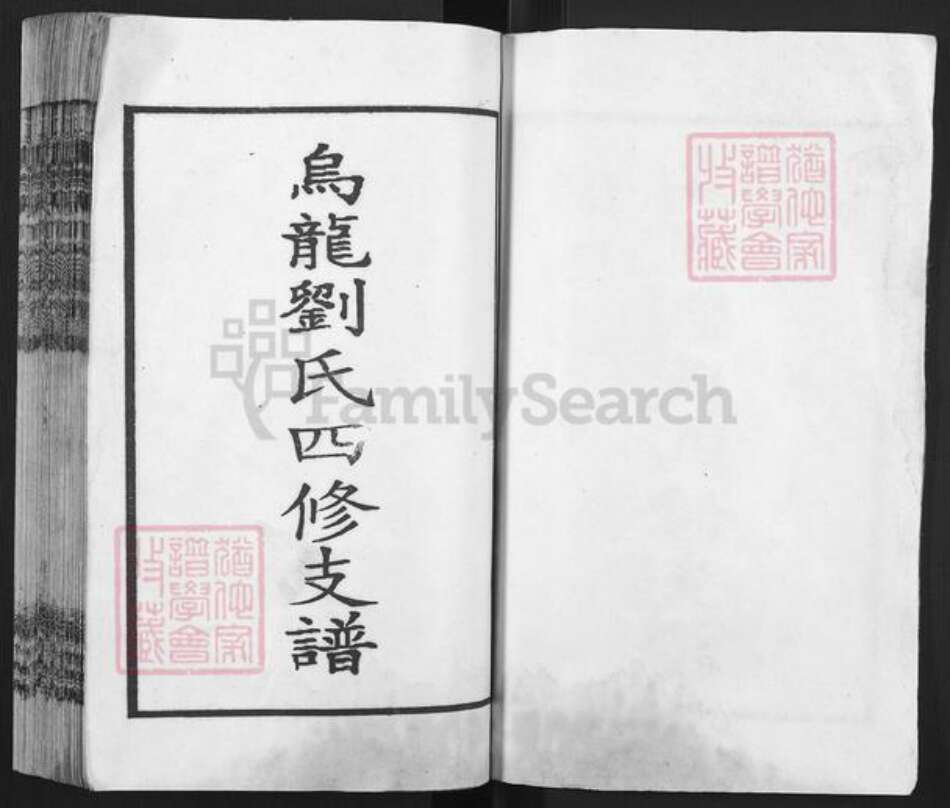 烏龍劉氏四修支譜
猶他家
譜學會
收藏
猶他家
譜學會
收藏
FamilySearch